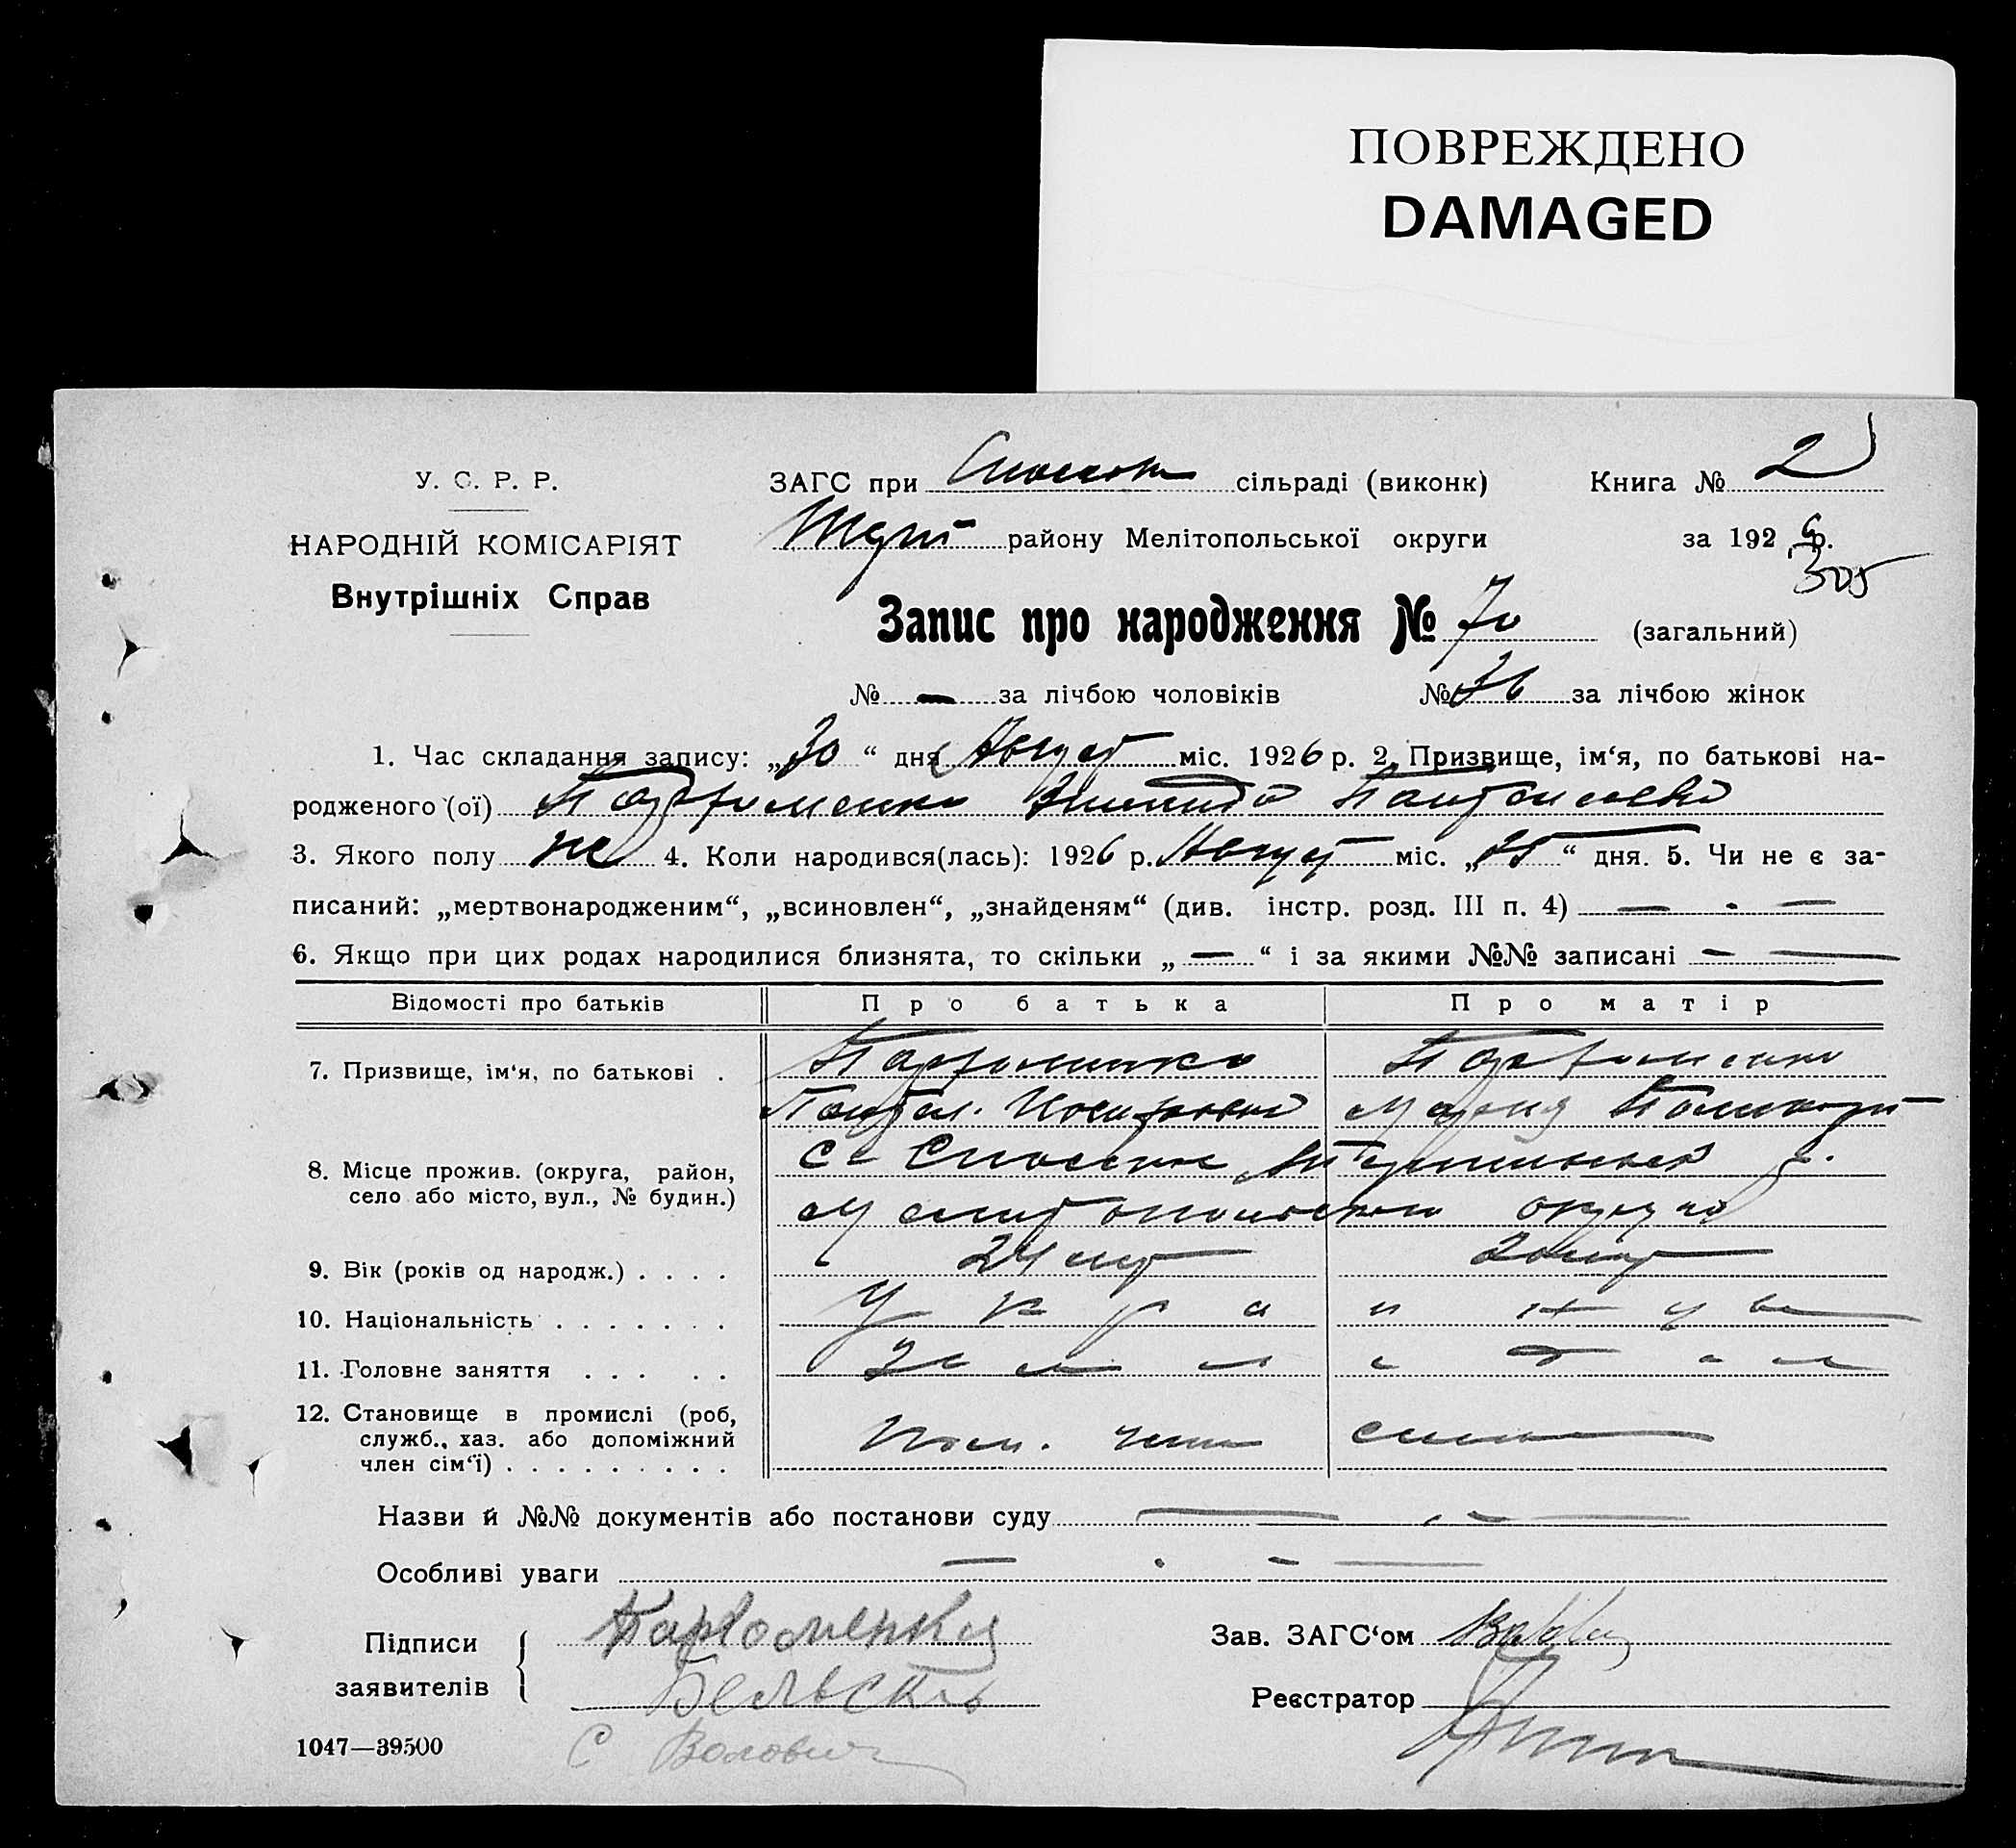 ПОВРЕЖДЕНО
DAMAGED
У. С. Р. Р.
НАРОДНІЙ КОМІСАРІЯТ
Внутрішніх Справ
ЗАГС при сільраді (виконк) Книга № 2
району Мелітопольської округи за 1926 р.
305
Запис про народження № 70 (загальний)
№ — за лічбою чоловіків № 36 за лічбою жінок
1. Час складання запису: „30“ дня Август міс. 1926 р. 2. Призвище, ім‘я, по батькові на-
родженого (ої) Пархоменко
3. Якого полу же 4. Коли народився(лась): 1926 р. Август міс. „25“ дня. 5. Чи не є за-
писаний: „мертвонародженим“, „всиновлен“, „знайденям“ (див. інстр. розд. III п. 4) — . —
6. Якщо при цих родах народилися близнята, то скільки „—“ і за якими №№ записані — —
Відомості про батьків Про батька Про матір
7. Призвище, ім‘я, по батькові . Пархоменко Пархоменко
Мария
8. Місце прожив. (округа, район,
село або місто, вул., № будин.)
Мелитопольского округа
9. Вік (років од народж.) . . . . 24 лет 20 лет
10. Національність . . . . . . . Укра
11. Головне заняття . . . . .
12. Становище в промислі (роб,
служб., хаз. або допоміжний
член сім‘ї) . . . . . . . . .
Назви й №№ документів або постанови суду — . — —
Особливі уваги — . — —
Підписи
заявителів
Пархоменко
Бельский
С Волович
Зав. ЗАГС‘ом
Реєстратор
1047—39500